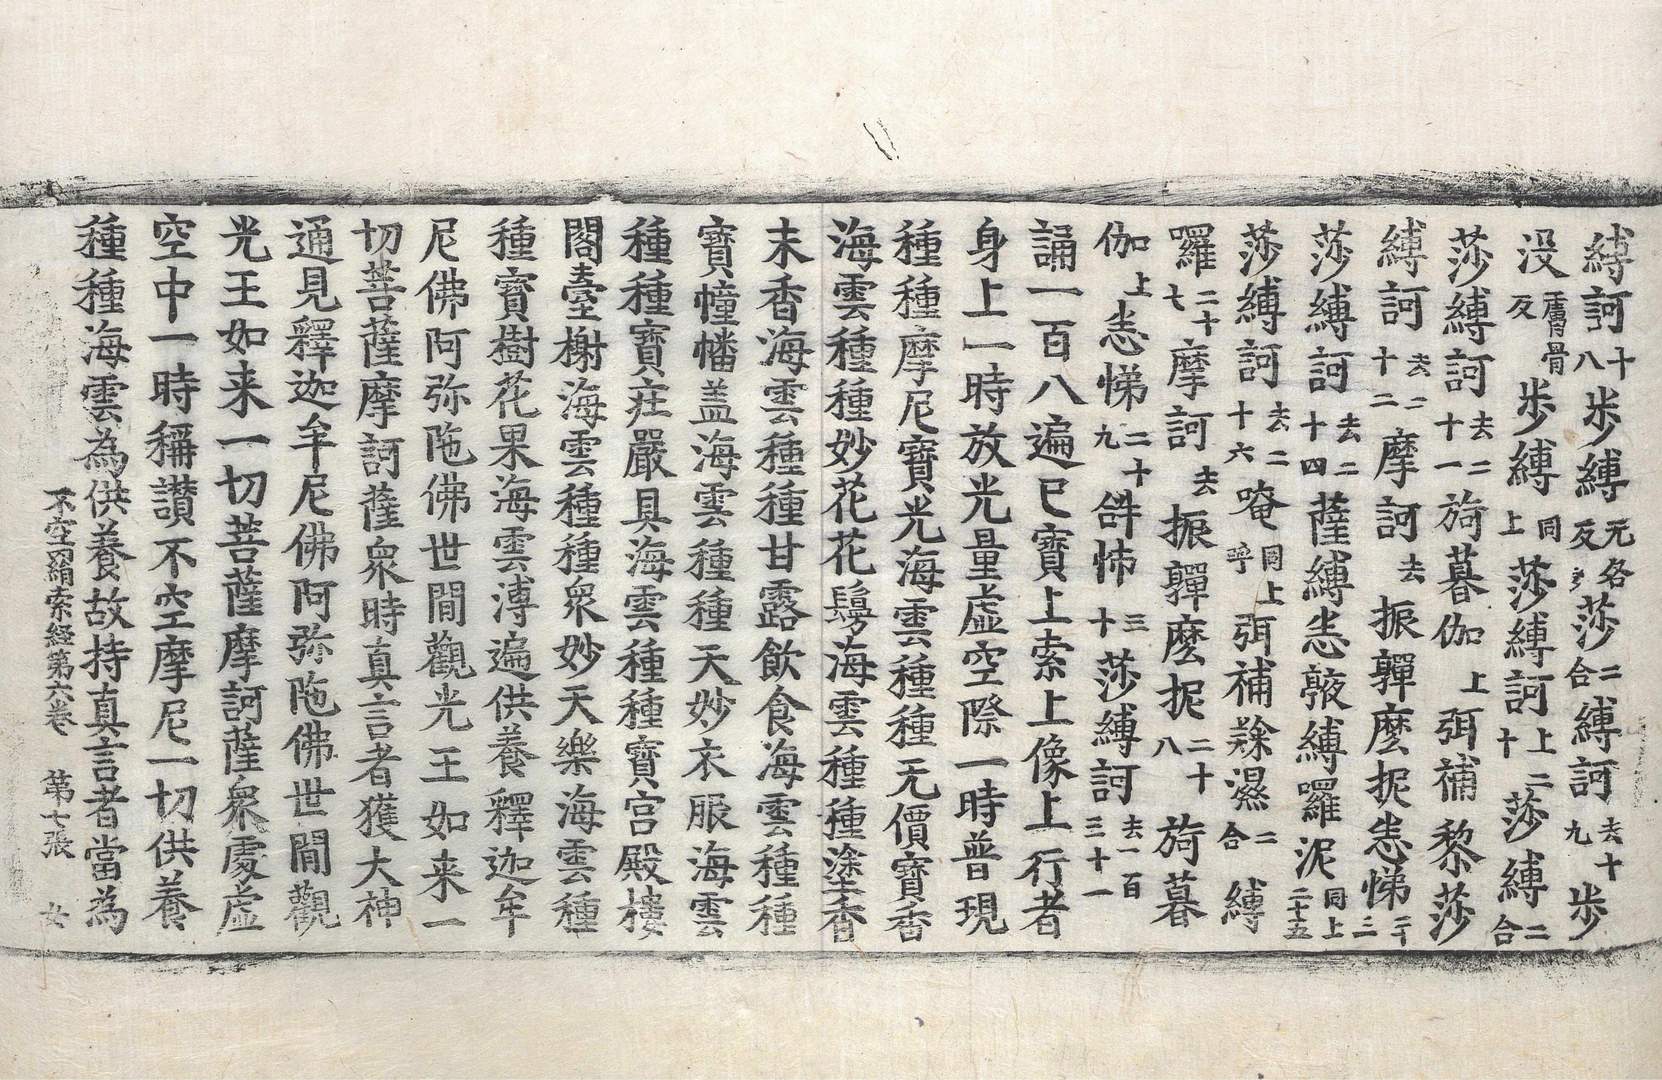 縛訶十八步縛无各反莎二合縛訶去十九步
没膚骨反步縛同上莎縛訶上二十莎縛二合
莎縛訶去二十一旖暮伽上弭補黎莎
縛訶去二十二摩訶去振軃麽抳悉悌二十三
莎縛訶去二十四薩縛悉縛囉泥同上二十五
莎縛訶去二十六唵同上呼弭補濕二合縛
囉二十七摩訶去振軃麽抳二十八旖暮
伽上悉悌二十九𤙖怖三十莎縛訶去一百三十一
誦一百八遍已寶上索上像上行者
身上一時放光量虛空際一時普現
種種摩尼寶光海雲種種无價寶香
海雲種種妙花花鬘海雲種種塗香
末香海雲種種甘露飲食海雲種種
寶幢幡盖海雲種種天妙衣服海雲
種種寶莊嚴具海雲種種寶宮殿樓
閣臺榭海雲種種衆妙天樂海雲種
種寶樹花果海雲溥遍供養釋迦牟
尼佛阿弥陁佛世間觀光王如来一
切菩薩摩訶薩衆時真言者獲大神
通見釋迦牟尼佛阿弥陁佛世間觀
光王如来一切菩薩摩訶薩衆處虛
空中一時稱讚不空摩尼一切供養
種種海雲為供養故持真言者當為
不空羂索経第六卷　第七張　女